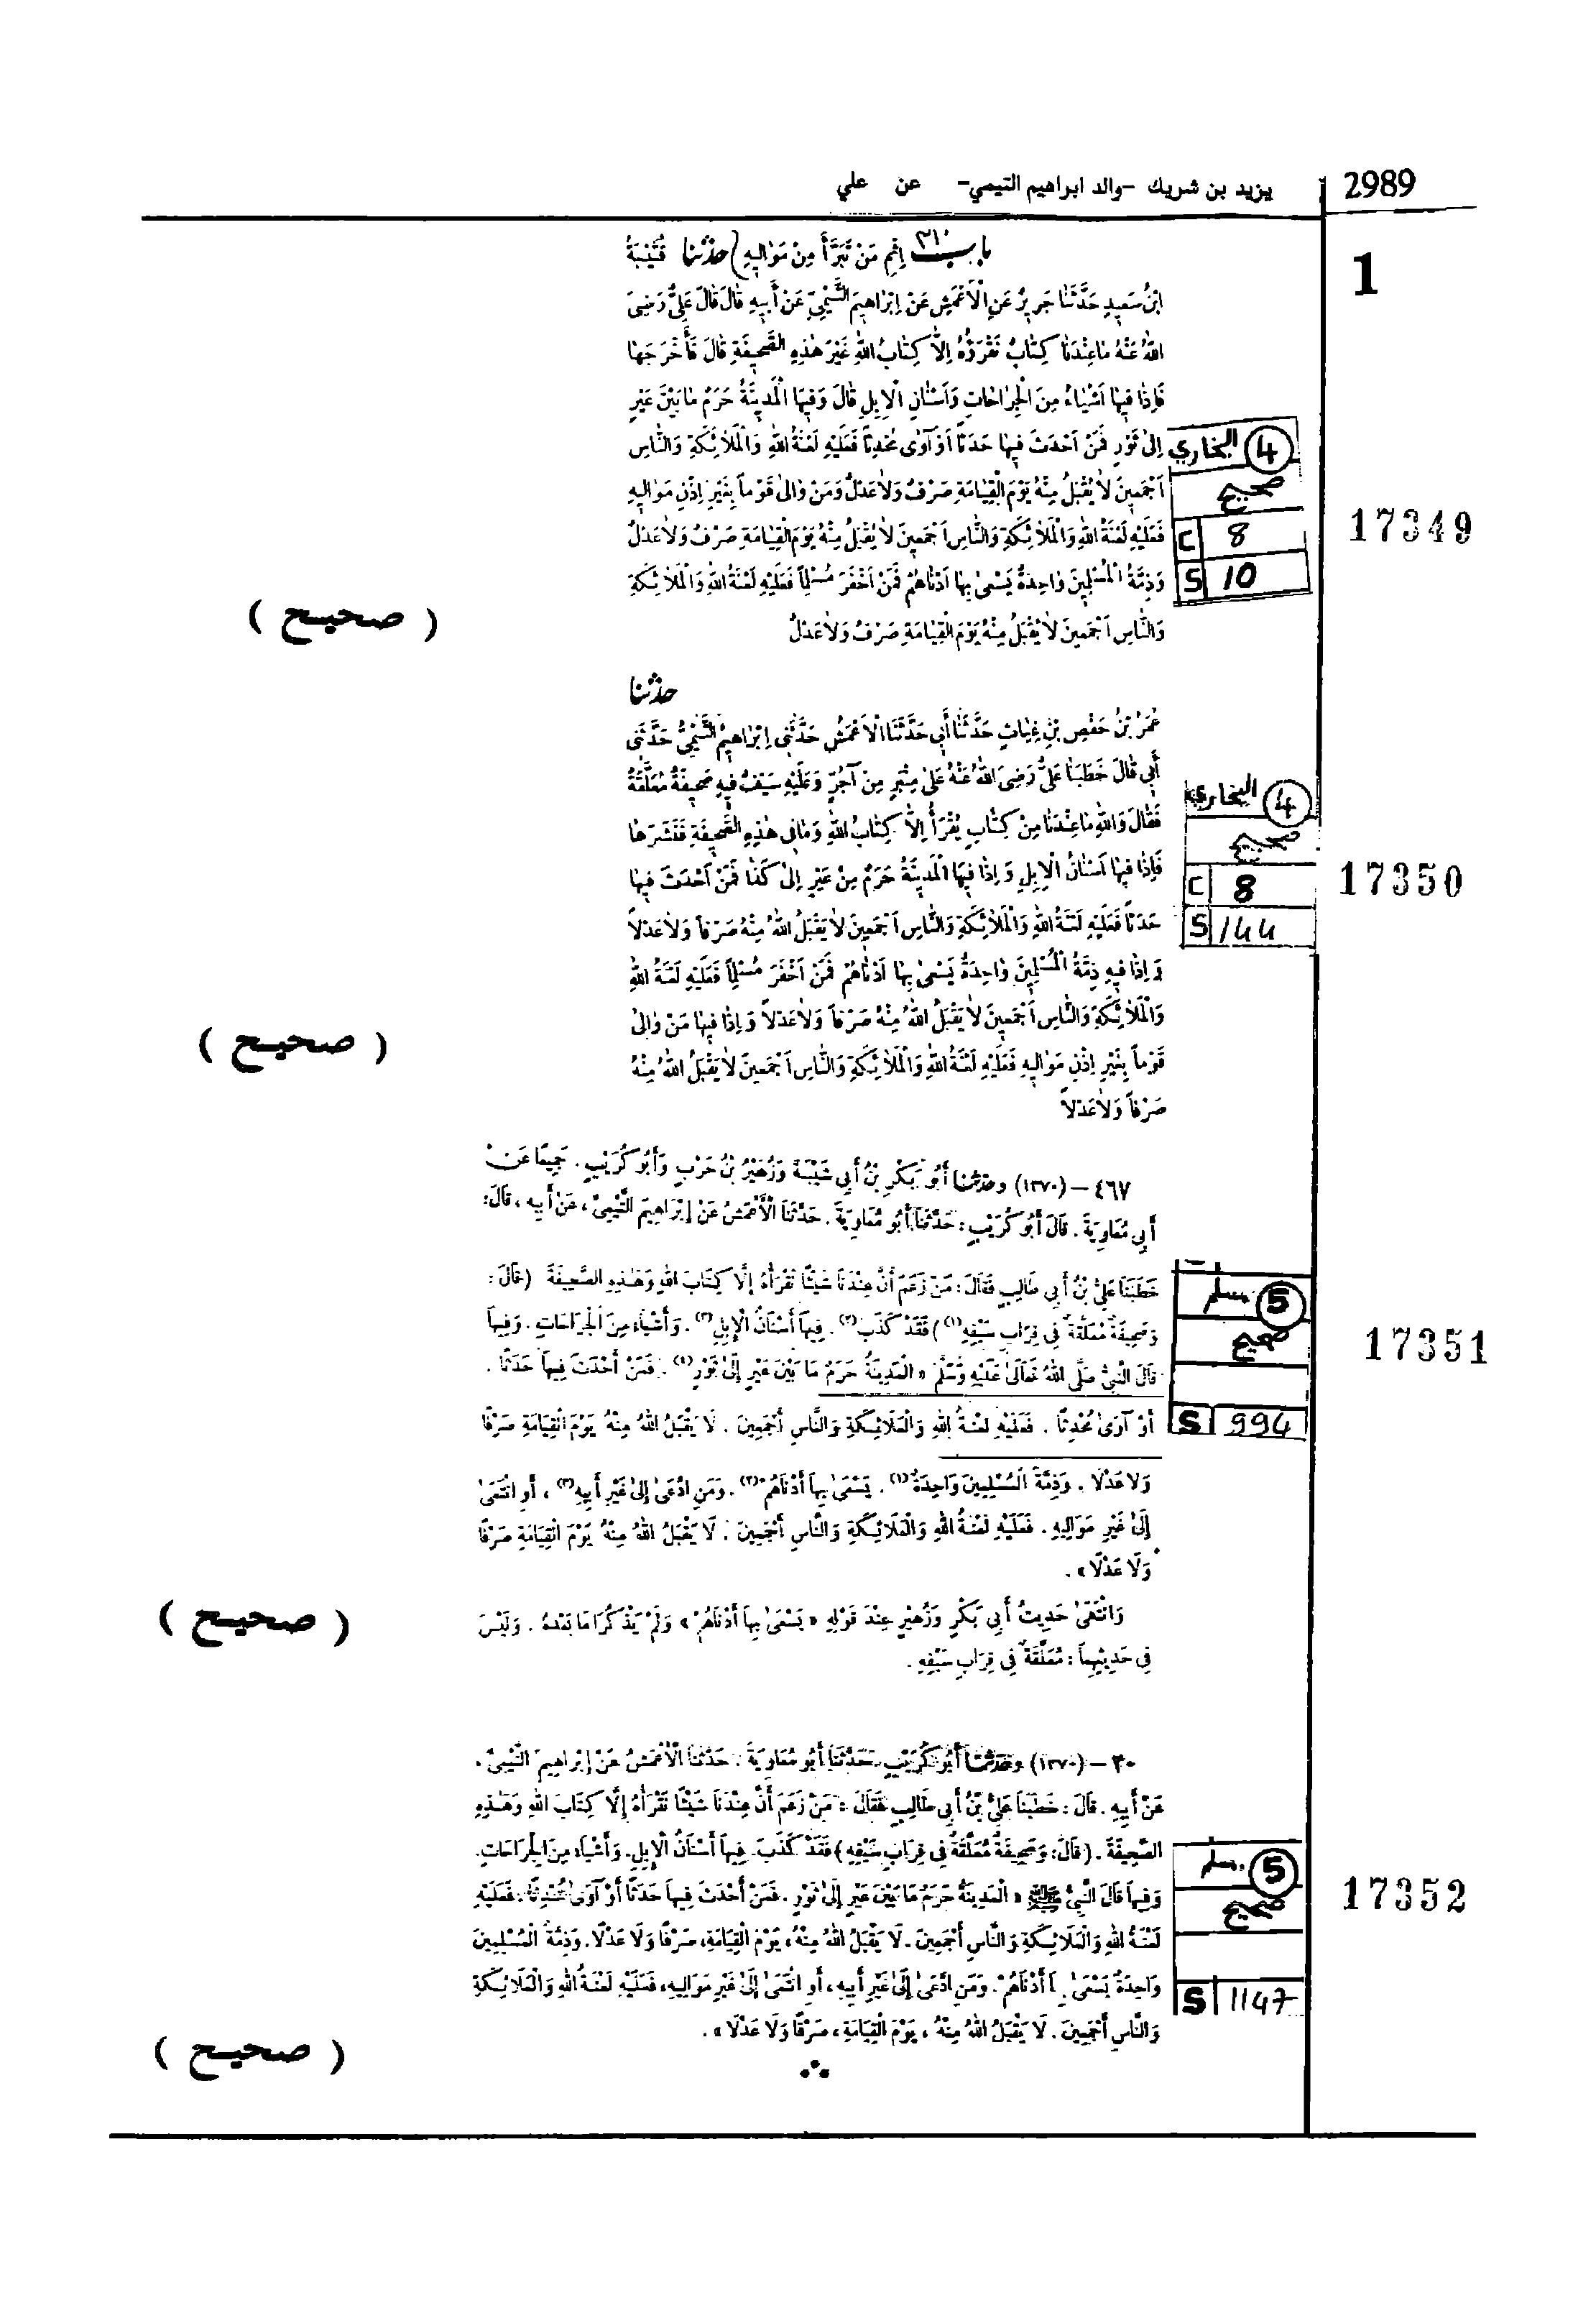 2989
يزيد بن شريك -والد ابراهيم التيمي- عن علي
1
باب ٣١٠ إِثْمِ مَنْ تَبَرَّأَ مِنْ مَوَالِيهِ) حَدَّثَنَا قُتَيْبَةُ
ابْنُ سَعِيدٍ حَدَّثَنَا جَرِيرٌ عَنِ الْأَعْمَشِ عَنْ إِبْرَاهِيمَ التَّيْمِيِّ عَنْ أَبِيهِ قَالَ قَالَ عَلِيٌّ رَضِيَ
اللهُ عَنْهُ مَا عِنْدَنَا كِتَابٌ نَقْرَؤُهُ إِلَّا كِتَابُ اللهِ غَيْرَ هٰذِهِ الصَّحِيفَةِ قَالَ فَأَخْرَجَهَا
فَإِذَا فِيهَا أَشْيَاءُ مِنَ الْجِرَاحَاتِ وَأَسْنَانِ الْإِبِلِ قَالَ وَفِيهَا الْمَدِينَةُ حَرَمٌ مَا بَيْنَ عَيْرٍ
إِلَى ثَوْرٍ فَمَنْ أَحْدَثَ فِيهَا حَدَثاً أَوْ آوَى مُحْدِثاً فَعَلَيْهِ لَعْنَةُ اللهِ وَالْمَلَائِكَةِ وَالنَّاسِ
أَجْمَعِينَ لَا يُقْبَلُ مِنْهُ يَوْمَ الْقِيَامَةِ صَرْفٌ وَلَا عَدْلٌ وَمَنْ وَالَى قَوْماً بِغَيْرِ إِذْنِ مَوَالِيهِ
فَعَلَيْهِ لَعْنَةُ اللهِ وَالْمَلَائِكَةِ وَالنَّاسِ أَجْمَعِينَ لَا يُقْبَلُ مِنْهُ يَوْمَ الْقِيَامَةِ صَرْفٌ وَلَا عَدْلٌ
وَذِمَّةُ الْمُسْلِمِينَ وَاحِدَةٌ يَسْعَى بِهَا أَدْنَاهُمْ فَمَنْ أَخْفَرَ مُسْلِماً فَعَلَيْهِ لَعْنَةُ اللهِ وَالْمَلَائِكَةِ
وَالنَّاسِ أَجْمَعِينَ لَا يُقْبَلُ مِنْهُ يَوْمَ الْقِيَامَةِ صَرْفٌ وَلَا عَدْلٌ
4 البخاري
صحيح
C 8
S 10
17349
( صحيح )
حَدَّثَنَا
عُمَرُ بْنُ حَفْصِ بْنِ غِيَاثٍ حَدَّثَنَا أَبِي حَدَّثَنَا الْأَعْمَشُ حَدَّثَنِي إِبْرَاهِيمُ التَّيْمِيُّ حَدَّثَنِي
أَبِي قَالَ خَطَبَنَا عَلِيٌّ رَضِيَ اللهُ عَنْهُ عَلَى مِنْبَرٍ مِنْ آجُرٍّ وَعَلَيْهِ سَيْفٌ فِيهِ صَحِيفَةٌ مُعَلَّقَةٌ
فَقَالَ وَاللهِ مَا عِنْدَنَا مِنْ كِتَابٍ يُقْرَأُ إِلَّا كِتَابُ اللهِ وَمَا فِي هٰذِهِ الصَّحِيفَةِ فَنَشَرَهَا
فَإِذَا فِيهَا أَسْنَانُ الْإِبِلِ وَإِذَا فِيهَا الْمَدِينَةُ حَرَمٌ مِنْ عَيْرٍ إِلَى كَذَا فَمَنْ أَحْدَثَ فِيهَا
حَدَثاً فَعَلَيْهِ لَعْنَةُ اللهِ وَالْمَلَائِكَةِ وَالنَّاسِ أَجْمَعِينَ لَا يَقْبَلُ اللهُ مِنْهُ صَرْفاً وَلَا عَدْلاً
وَإِذَا فِيهِ ذِمَّةُ الْمُسْلِمِينَ وَاحِدَةٌ يَسْعَى بِهَا أَدْنَاهُمْ فَمَنْ أَخْفَرَ مُسْلِماً فَعَلَيْهِ لَعْنَةُ اللهِ
وَالْمَلَائِكَةِ وَالنَّاسِ أَجْمَعِينَ لَا يَقْبَلُ اللهُ مِنْهُ صَرْفاً وَلَا عَدْلاً وَإِذَا فِيهَا مَنْ وَالَى
قَوْماً بِغَيْرِ إِذْنِ مَوَالِيهِ فَعَلَيْهِ لَعْنَةُ اللهِ وَالْمَلَائِكَةِ وَالنَّاسِ أَجْمَعِينَ لَا يَقْبَلُ اللهُ مِنْهُ
صَرْفاً وَلَا عَدْلاً
4 البخاري
صحيح
C 8
S 144
17350
( صحيح )
٤٦٧ – (١٣٧٠) وحَدَّثَنَا أَبُو بَكْرِ بْنُ أَبِي شَيْبَةَ وَزُهَيْرُ بْنُ حَرْبٍ وَأَبُو كُرَيْبٍ . جَمِيعًا عَنْ
أَبِي مُعَاوِيَةَ . قَالَ أَبُو كُرَيْبٍ : حَدَّثَنَا أَبُو مُعَاوِيَةَ . حَدَّثَنَا الْأَعْمَشُ عَنْ إِبْرَاهِيمَ التَّيْمِيِّ ، عَنْ أَبِيهِ ، قَالَ:
خَطَبَنَا عَلِيُّ بْنُ أَبِي طَالِبٍ فَقَالَ : مَنْ زَعَمَ أَنَّ عِنْدَنَا شَيْئًا نَقْرَأُهُ إِلَّا كِتَابَ اللهِ وَهٰذِهِ الصَّحِيفَةَ (قَالَ :
وَصَحِيفَةٌ مُعَلَّقَةٌ فِي قِرَابِ سَيْفِهِ(١)) فَقَدْ كَذَبَ(٢) . فِيهَا أَسْنَانُ الْإِبِلِ(٣) . وَأَشْيَاءُ مِنَ الْجِرَاحَاتِ . وَفِيهَا
قَالَ النَّبِيُّ صَلَّى اللهُ تَعَالَى عَلَيْهِ وَسَلَّمَ « الْمَدِينَةُ حَرَمٌ مَا بَيْنَ عَيْرٍ إِلَى ثَوْرٍ(٤) . فَمَنْ أَحْدَثَ فِيهَا حَدَثًا .
أَوْ آوَى مُحْدِثًا . فَعَلَيْهِ لَعْنَةُ اللهِ وَالْمَلَائِكَةِ وَالنَّاسِ أَجْمَعِينَ . لَا يَقْبَلُ اللهُ مِنْهُ يَوْمَ الْقِيَامَةِ صَرْفًا
وَلَا عَدْلًا . وَذِمَّةُ الْمُسْلِمِينَ وَاحِدَةٌ(١) . يَسْعَى بِهَا أَدْنَاهُمْ(٢) . وَمَنِ ادَّعَى إِلَى غَيْرِ أَبِيهِ(٣) ، أَوِ انْتَمَى
إِلَى غَيْرِ مَوَالِيهِ . فَعَلَيْهِ لَعْنَةُ اللهِ وَالْمَلَائِكَةِ وَالنَّاسِ أَجْمَعِينَ . لَا يَقْبَلُ اللهُ مِنْهُ يَوْمَ الْقِيَامَةِ صَرْفًا
وَلَا عَدْلًا » .
وَانْتَهَى حَدِيثُ أَبِي بَكْرٍ وَزُهَيْرٍ عِنْدَ قَوْلِهِ « يَسْعَى بِهَا أَدْنَاهُمْ » وَلَمْ يَذْكُرَا مَا بَعْدَهُ . وَلَيْسَ
فِي حَدِيثِهِمَا : مُعَلَّقَةٌ فِي قِرَابِ سَيْفِهِ .
5 مسلم
صحيح
S 994
17351
( صحيح )
٢٠ – (١٣٧٠) وحَدَّثَنَا أَبُو كُرَيْبٍ . حَدَّثَنَا أَبُو مُعَاوِيَةَ . حَدَّثَنَا الْأَعْمَشُ عَنْ إِبْرَاهِيمَ التَّيْمِيِّ ،
عَنْ أَبِيهِ . قَالَ : خَطَبَنَا عَلِيُّ بْنُ أَبِي طَالِبٍ فَقَالَ : مَنْ زَعَمَ أَنَّ عِنْدَنَا شَيْئًا نَقْرَأُهُ إِلَّا كِتَابَ اللهِ وَهٰذِهِ
الصَّحِيفَةَ . (قَالَ: وَصَحِيفَةٌ مُعَلَّقَةٌ فِي قِرَابِ سَيْفِهِ) فَقَدْ كَذَبَ. فِيهَا أَسْنَانُ الْإِبِلِ. وَأَشْيَاءُ مِنَ الْجِرَاحَاتِ.
وَفِيهَا قَالَ النَّبِيُّ ﷺ « الْمَدِينَةُ حَرَمٌ مَا بَيْنَ عَيْرٍ إِلَى ثَوْرٍ . فَمَنْ أَحْدَثَ فِيهَا حَدَثًا أَوْ آوَى مُحْدِثًا، فَعَلَيْهِ
لَعْنَةُ اللهِ وَالْمَلَائِكَةِ وَالنَّاسِ أَجْمَعِينَ . لَا يَقْبَلُ اللهُ مِنْهُ، يَوْمَ الْقِيَامَةِ، صَرْفًا وَلَا عَدْلًا. وَذِمَّةُ الْمُسْلِمِينَ
وَاحِدَةٌ يَسْعَى بِهَا أَدْنَاهُمْ. وَمَنِ ادَّعَى إِلَى غَيْرِ أَبِيهِ، أَوِ انْتَمَى إِلَى غَيْرِ مَوَالِيهِ، فَعَلَيْهِ لَعْنَةُ اللهِ وَالْمَلَائِكَةِ
وَالنَّاسِ أَجْمَعِينَ . لَا يَقْبَلُ اللهُ مِنْهُ ، يَوْمَ الْقِيَامَةِ، صَرْفًا وَلَا عَدْلًا » .
5 مسلم
صحيح
S 1147
17352
( صحيح )